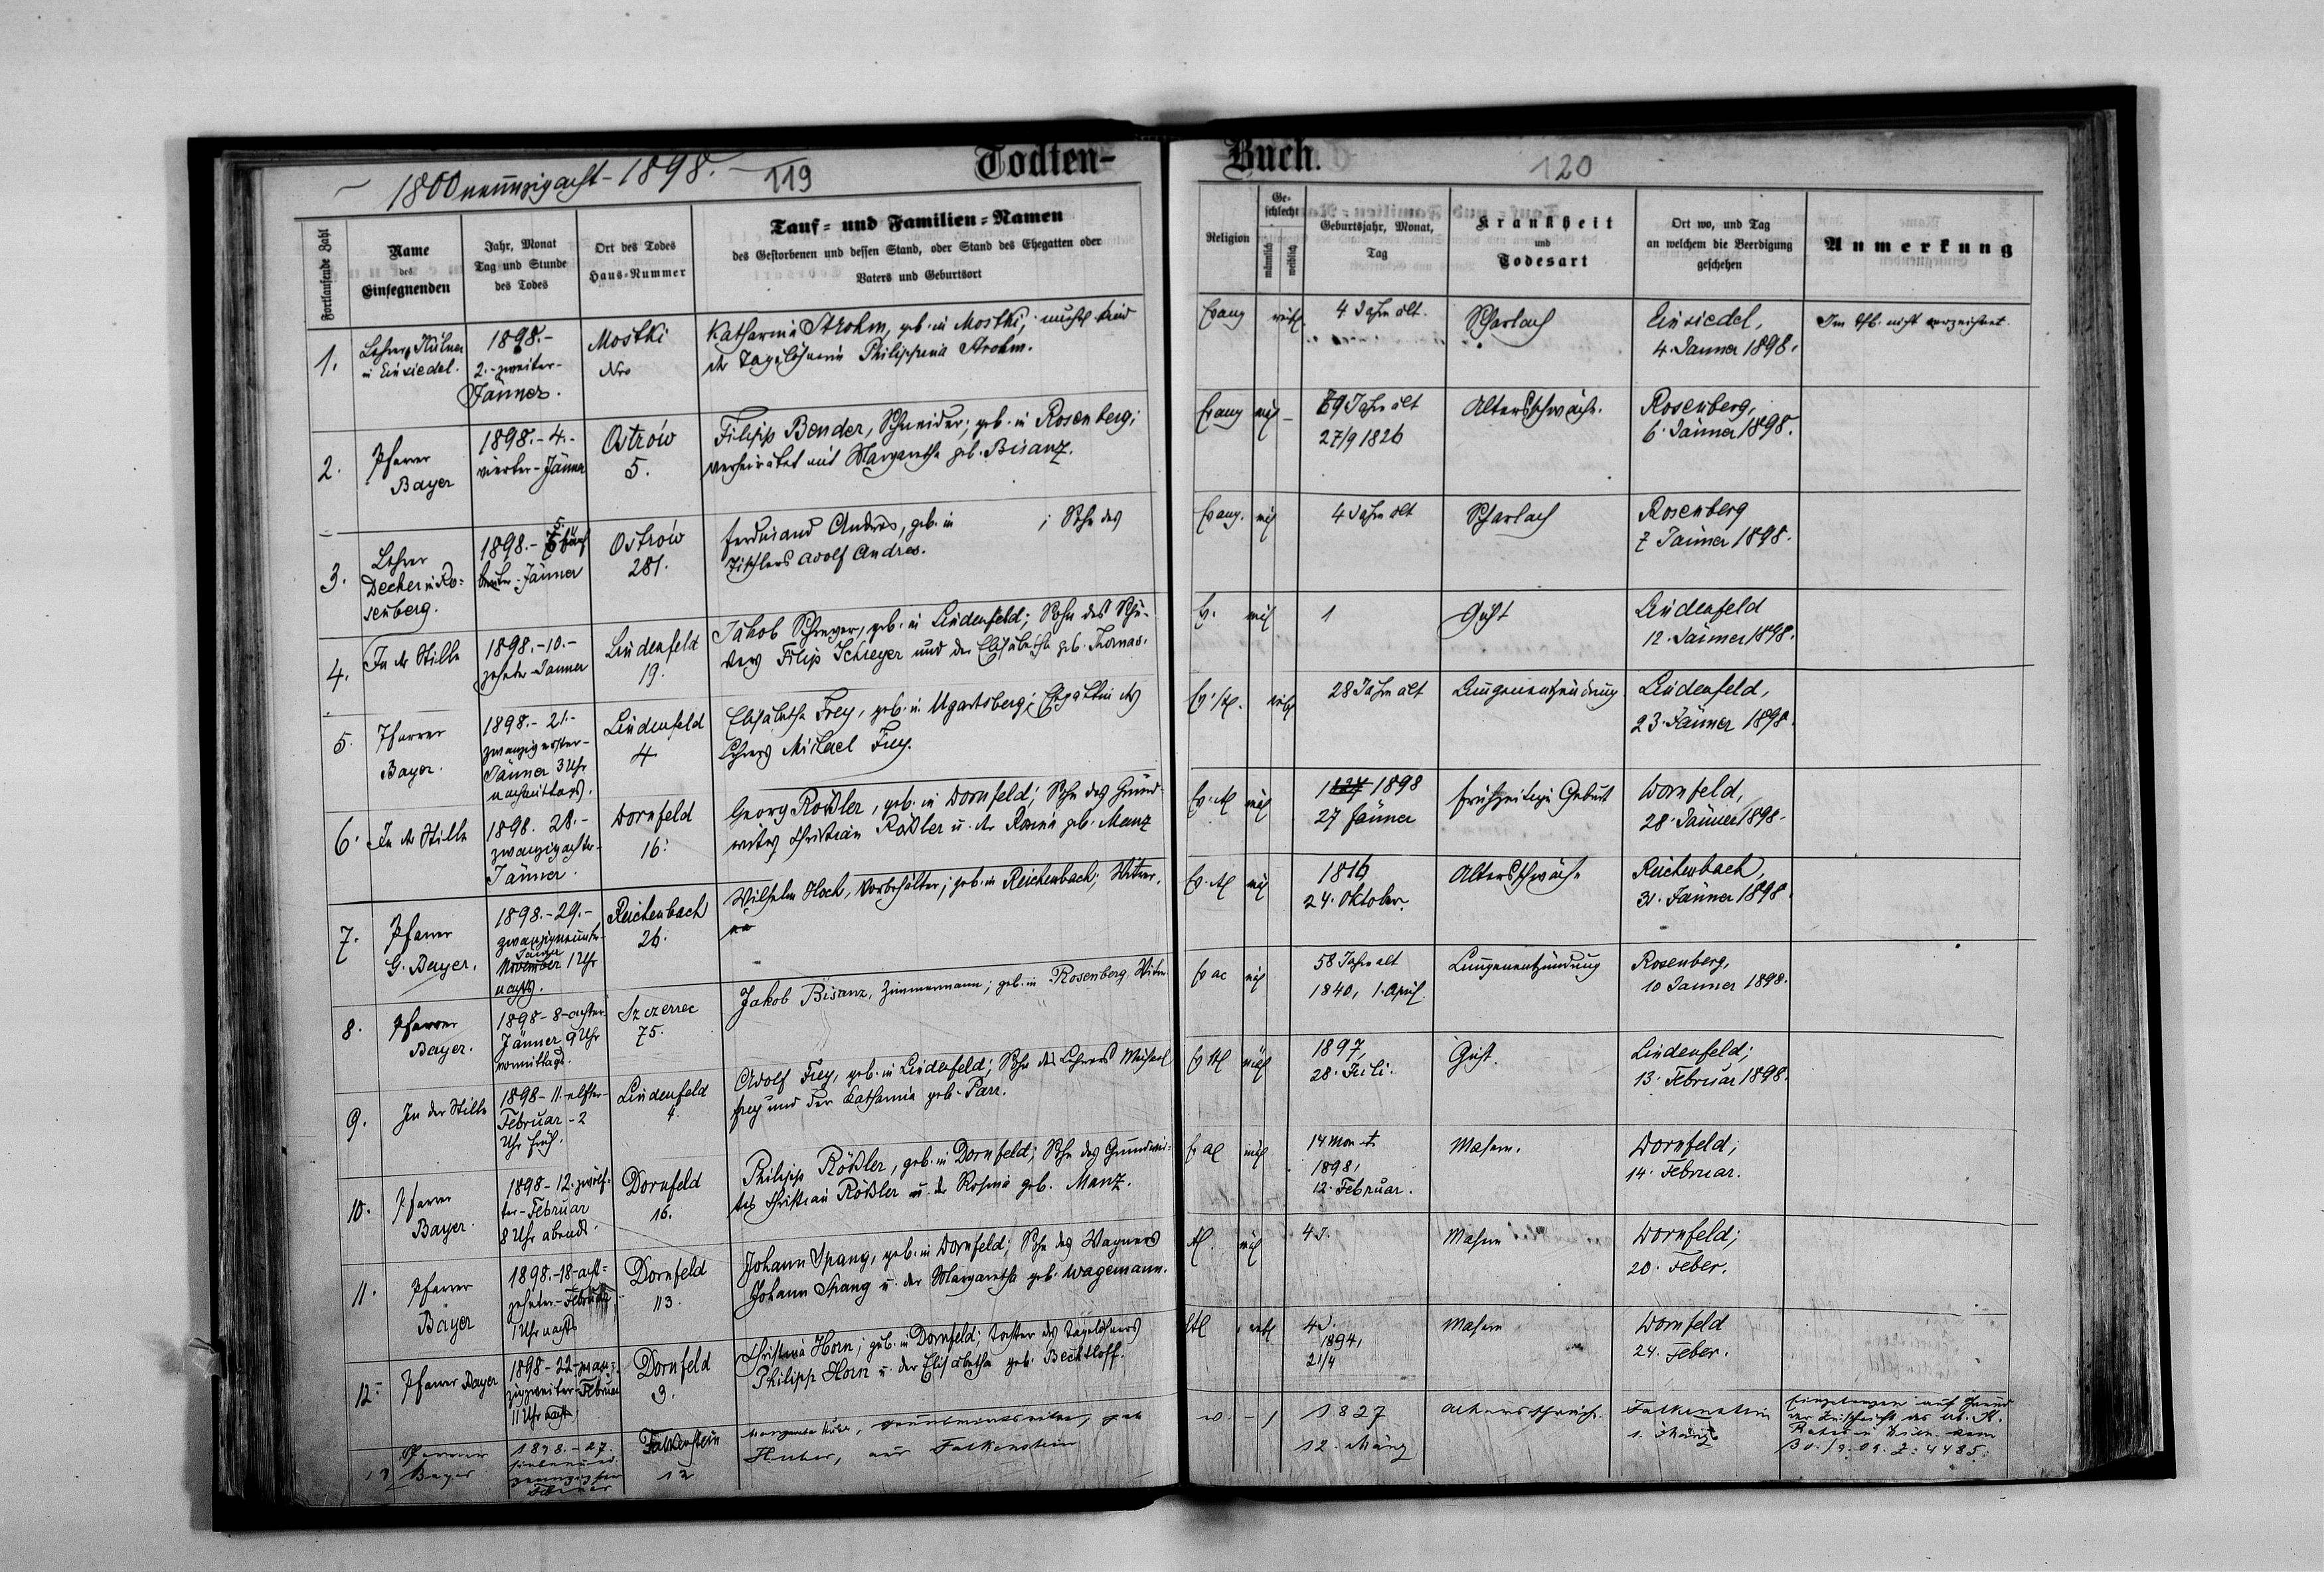 1800neunzigacht - 1898. - 119
Todten-
Buch.
120
Fortlaufende Zahl
Name
des
Einsegnenden
Jahr, Monat
Tag und Stunde
des Todes
Ort des Todes
Haus-Nummer
Tauf- und Familien-Namen
des Gestorbenen und dessen Stand, oder Stand des Ehegatten oder
Vaters und Geburtsort
Religion
Ge-
schlecht
männlich
weiblich
Geburtsjahr, Monat,
Tag
Krankheit
und
Todesart
Ort wo, und Tag
an welchem die Beerdigung
geschehen
Anmerkung
1.
Lehrer
in Einsiedel.
1898.-
2.-zweiter-
Jänner.
Mostki
Nro
Katharina Strohm, geb. in Mostki, Kind
der Tagelöhnerin Philippina Strohm.
Evang
4 Jahre alt.
Scharlach
Einsiedel,
4. Jänner 1898.
Im nicht verzeichnet.
2.
Pfarrer
Bayer
1898.-4.-
vierter-Jänner
Ostrów
5.
Filipp Bender, Schneider; geb. in Rosenberg;
verheiratet mit Margaretha geb. Bisanz.
Evang
69 Jahre alt
27/9 1826
Altersschwäche.
Rosenberg,
6. Jänner 1898.
3.
Lehrer
Decker in Ro-
senberg.
1898.- 5
Jänner
Ostrów
281.
Ferdinand Andres, geb. in ; Sohn des
Tischlers Adolf Andres.
Evang.
4 Jahre alt
Scharlach
Rosenberg
7 Jänner 1898.
4.
In der Stille
1898.-10.-
zehnter-Jänner
Lindenfeld
19.
Jakob Schreyer, geb. in Lindenfeld; Sohn des
Filip Schreyer und der Elisabetha geb. Thomas.
Ev.
1
Gicht
Lindenfeld
12. Jänner 1898.
5.
Pfarrer
Bayer.
1898.-21.-
zwanzigerster-
Jänner 3 Uhr
nachmittags.
Lindenfeld
4.
Elisabetha Frey, geb. in Ugartsberg; Ehegattin des
Lehrers Michael Frey.
28 Jahre alt
Lungenentzündung
Lindenfeld,
23. Jänner 1898.
6.
In der Stille
1898. 28.-
zwanzigachter-
Jänner.
Dornfeld
16.
Georg Rößler, geb. in Dornfeld; Sohn des Grund-
wirtes Christian Rößler u. der Rosina geb. Manz
1898
27 Jänner
frühzeitige Geburt
Dornfeld,
28. Jänner 1898.
7.
Pfarrer
G. Bayer.
1898.-29.-
zwanzigneunter-
Jänner
November 1 Uhr
nachts.
Reichenbach
26.
Wilhelm Hoch, Vorbehälter; geb. in Reichenbach; Witwer.
1816
24. Oktober.
Altersschwäche
Reichenbach,
31. Jänner 1898.
8.
Pfarrer
Bayer.
1898-8-achter
Jänner 9 Uhr
vormittags.
Szczerzec
75.
Jakob Bisanz, Zimmermann; geb. in Rosenberg. Witwer
58 Jahre alt
1840, 1. April.
Lungenentzündung
Rosenberg,
10 Jänner 1898.
9.
In der Stille
1898-11.-elfter-
Februar-2
Uhr früh.
Lindenfeld
4.
Adolf Frey, geb. in Lindenfeld; Sohn des Lehrers Michael
Frey und der Katharina geb. Parr.
1897,
28. Juli.
Gicht.
Lindenfeld;
13. Februar 1898.
10.
Pfarrer
Bayer.
1898-12.zwölf-
ter-Februar
8 Uhr abends.
Dornfeld
16.
Philipp Rößler, geb. in Dornfeld; Sohn des Grundwir-
tes Christian Rößler u. der Rosina geb. Manz.
14 Mon
1898,
12. Februar.
Masern.
Dornfeld;
14. Februar.
11.
Pfarrer
Bayer
1898.-18-acht-
zehnter-Februar
1 Uhr nachts
Dornfeld
113.
Johann Spang, geb. in Dornfeld; Sohn des Wagners
Johann Spang u. der Margaretha geb. Wagemann.
4 J.
Masern
Dornfeld;
20. Feber.
12.
Pfarrer Bayer
1898-22-zwan-
zigzweiter-Februar
11 Uhr nachts
Dornfeld
3.
Christina Horn; geb. in Dornfeld; Tochter des Tagelöhners
Philipp Horn u. der Elisabetha geb. Bechtloff.
4 J.
1894,
21/4
Masern
Dornfeld
24. Feber.
13
Pfarrer
Bayer
1898.-27.
Februar
Falkenstein
12
Margareta Huber, geb
Huber, aus Falkenstein
1827
12. März
Altersschwäche.
Falkenstein
1. März
Eingetragen auf Grund
der Zuschrift des
30./9.09. Z: 4485.